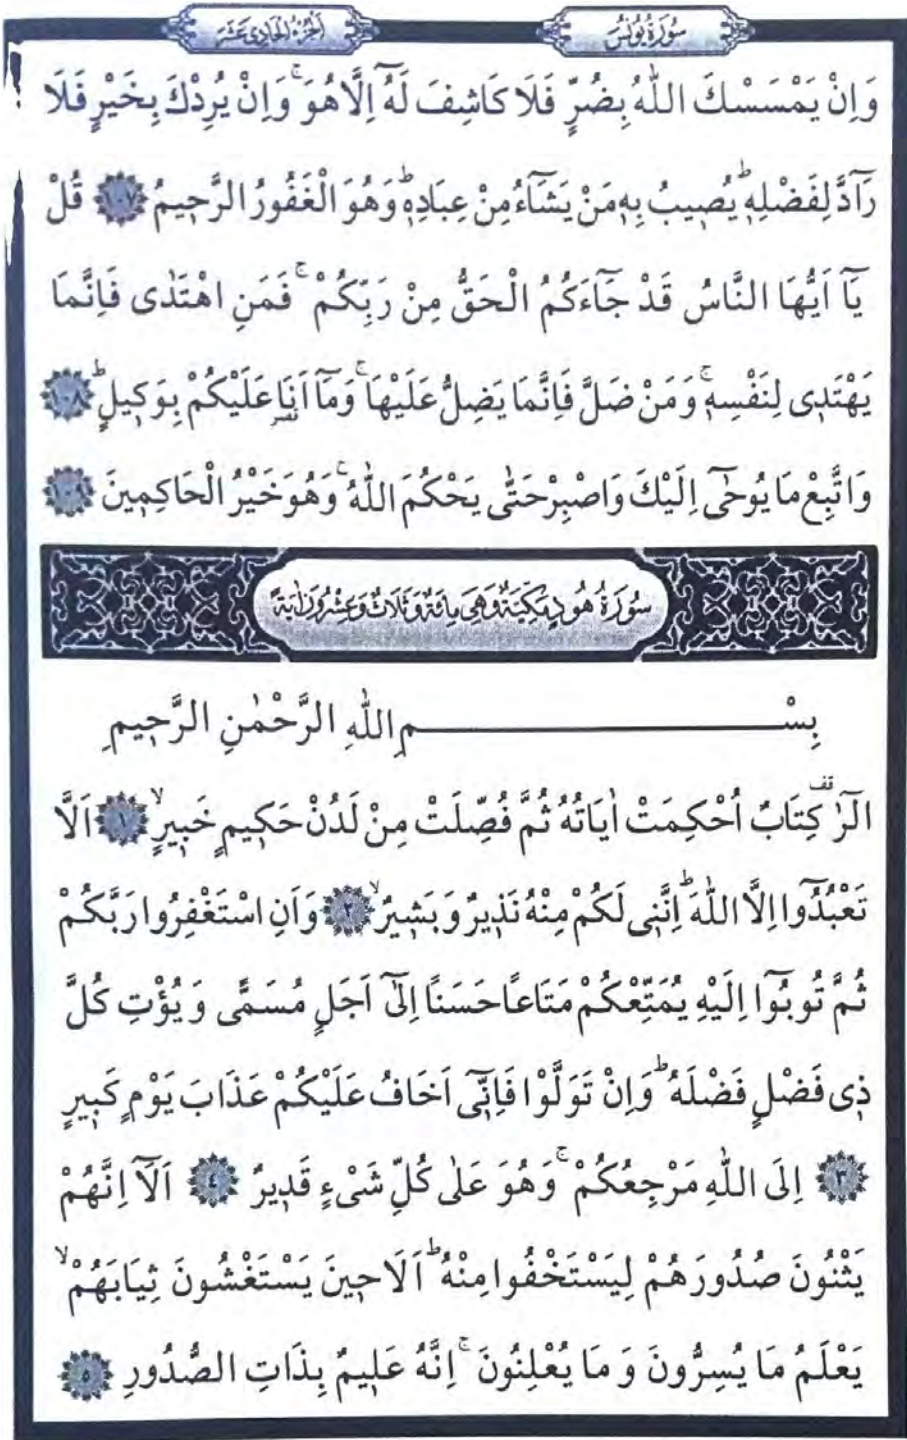 سُورَةُ يُونُسَ
اَلْجُزْءُ الْحَادِى عَشَرَ
وَاِنْ يَمْسَسْكَ اللّٰهُ بِضُرٍّ فَلَا كَاشِفَ لَهُٓ اِلَّا هُوَۚ وَاِنْ يُرِدْكَ بِخَيْرٍ فَلَا
رَٓادَّ لِفَضْلِه۪ۜ يُص۪يبُ بِه۪ مَنْ يَشَٓاءُ مِنْ عِبَادِه۪ۜ وَهُوَ الْغَفُورُ الرَّح۪يمُ ﴿١٠٧﴾ قُلْ
يَٓا اَيُّهَا النَّاسُ قَدْ جَٓاءَكُمُ الْحَقُّ مِنْ رَبِّكُمْۚ فَمَنِ اهْتَدٰى فَاِنَّمَا
يَهْتَد۪ى لِنَفْسِه۪ۚ وَمَنْ ضَلَّ فَاِنَّمَا يَضِلُّ عَلَيْهَاۚ وَمَٓا اَنَا۬ عَلَيْكُمْ بِوَك۪يلٍۜ ﴿١٠٨﴾
وَاتَّبِعْ مَا يُوحٰٓى اِلَيْكَ وَاصْبِرْ حَتّٰى يَحْكُمَ اللّٰهُۚ وَهُوَ خَيْرُ الْحَاكِم۪ينَ ﴿١٠٩﴾
سُورَةُ هُودٍ مَكِّيَّةٌ وَهِىَ مِائَةٌ وَثَلَاثٌ وَعِشْرُونَ اٰيَةً
بِسْمِ اللّٰهِ الرَّحْمٰنِ الرَّح۪يمِ
الٓرٰ۠ كِتَابٌ اُحْكِمَتْ اٰيَاتُهُ ثُمَّ فُصِّلَتْ مِنْ لَدُنْ حَك۪يمٍ خَب۪يرٍۙ ﴿١﴾ اَلَّا
تَعْبُدُٓوا اِلَّا اللّٰهَۜ اِنَّن۪ى لَكُمْ مِنْهُ نَذ۪يرٌ وَبَش۪يرٌۙ ﴿٢﴾ وَاَنِ اسْتَغْفِرُوا رَبَّكُمْ
ثُمَّ تُوبُٓوا اِلَيْهِ يُمَتِّعْكُمْ مَتَاعًا حَسَنًا اِلٰٓى اَجَلٍ مُسَمًّى وَيُؤْتِ كُلَّ
ذ۪ى فَضْلٍ فَضْلَهُۜ وَاِنْ تَوَلَّوْا فَاِنّ۪ٓى اَخَافُ عَلَيْكُمْ عَذَابَ يَوْمٍ كَب۪يرٍ
﴿٣﴾ اِلَى اللّٰهِ مَرْجِعُكُمْۚ وَهُوَ عَلٰى كُلِّ شَىْءٍ قَد۪يرٌ ﴿٤﴾ اَلَٓا اِنَّهُمْ
يَثْنُونَ صُدُورَهُمْ لِيَسْتَخْفُوا مِنْهُۜ اَلَا ح۪ينَ يَسْتَغْشُونَ ثِيَابَهُمْۙ
يَعْلَمُ مَا يُسِرُّونَ وَمَا يُعْلِنُونَۚ اِنَّهُ عَل۪يمٌ بِذَاتِ الصُّدُورِ ﴿٥﴾